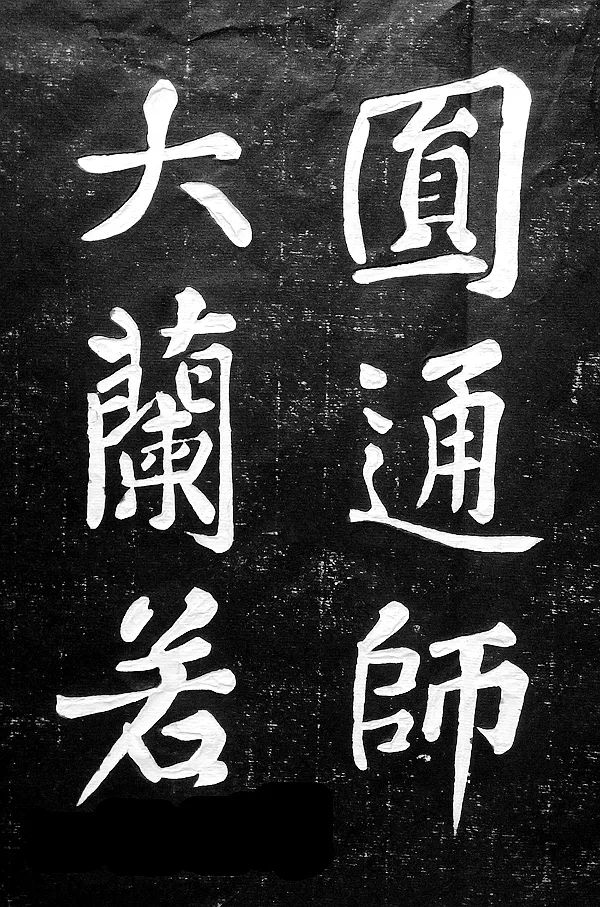 圓通師
大蘭若